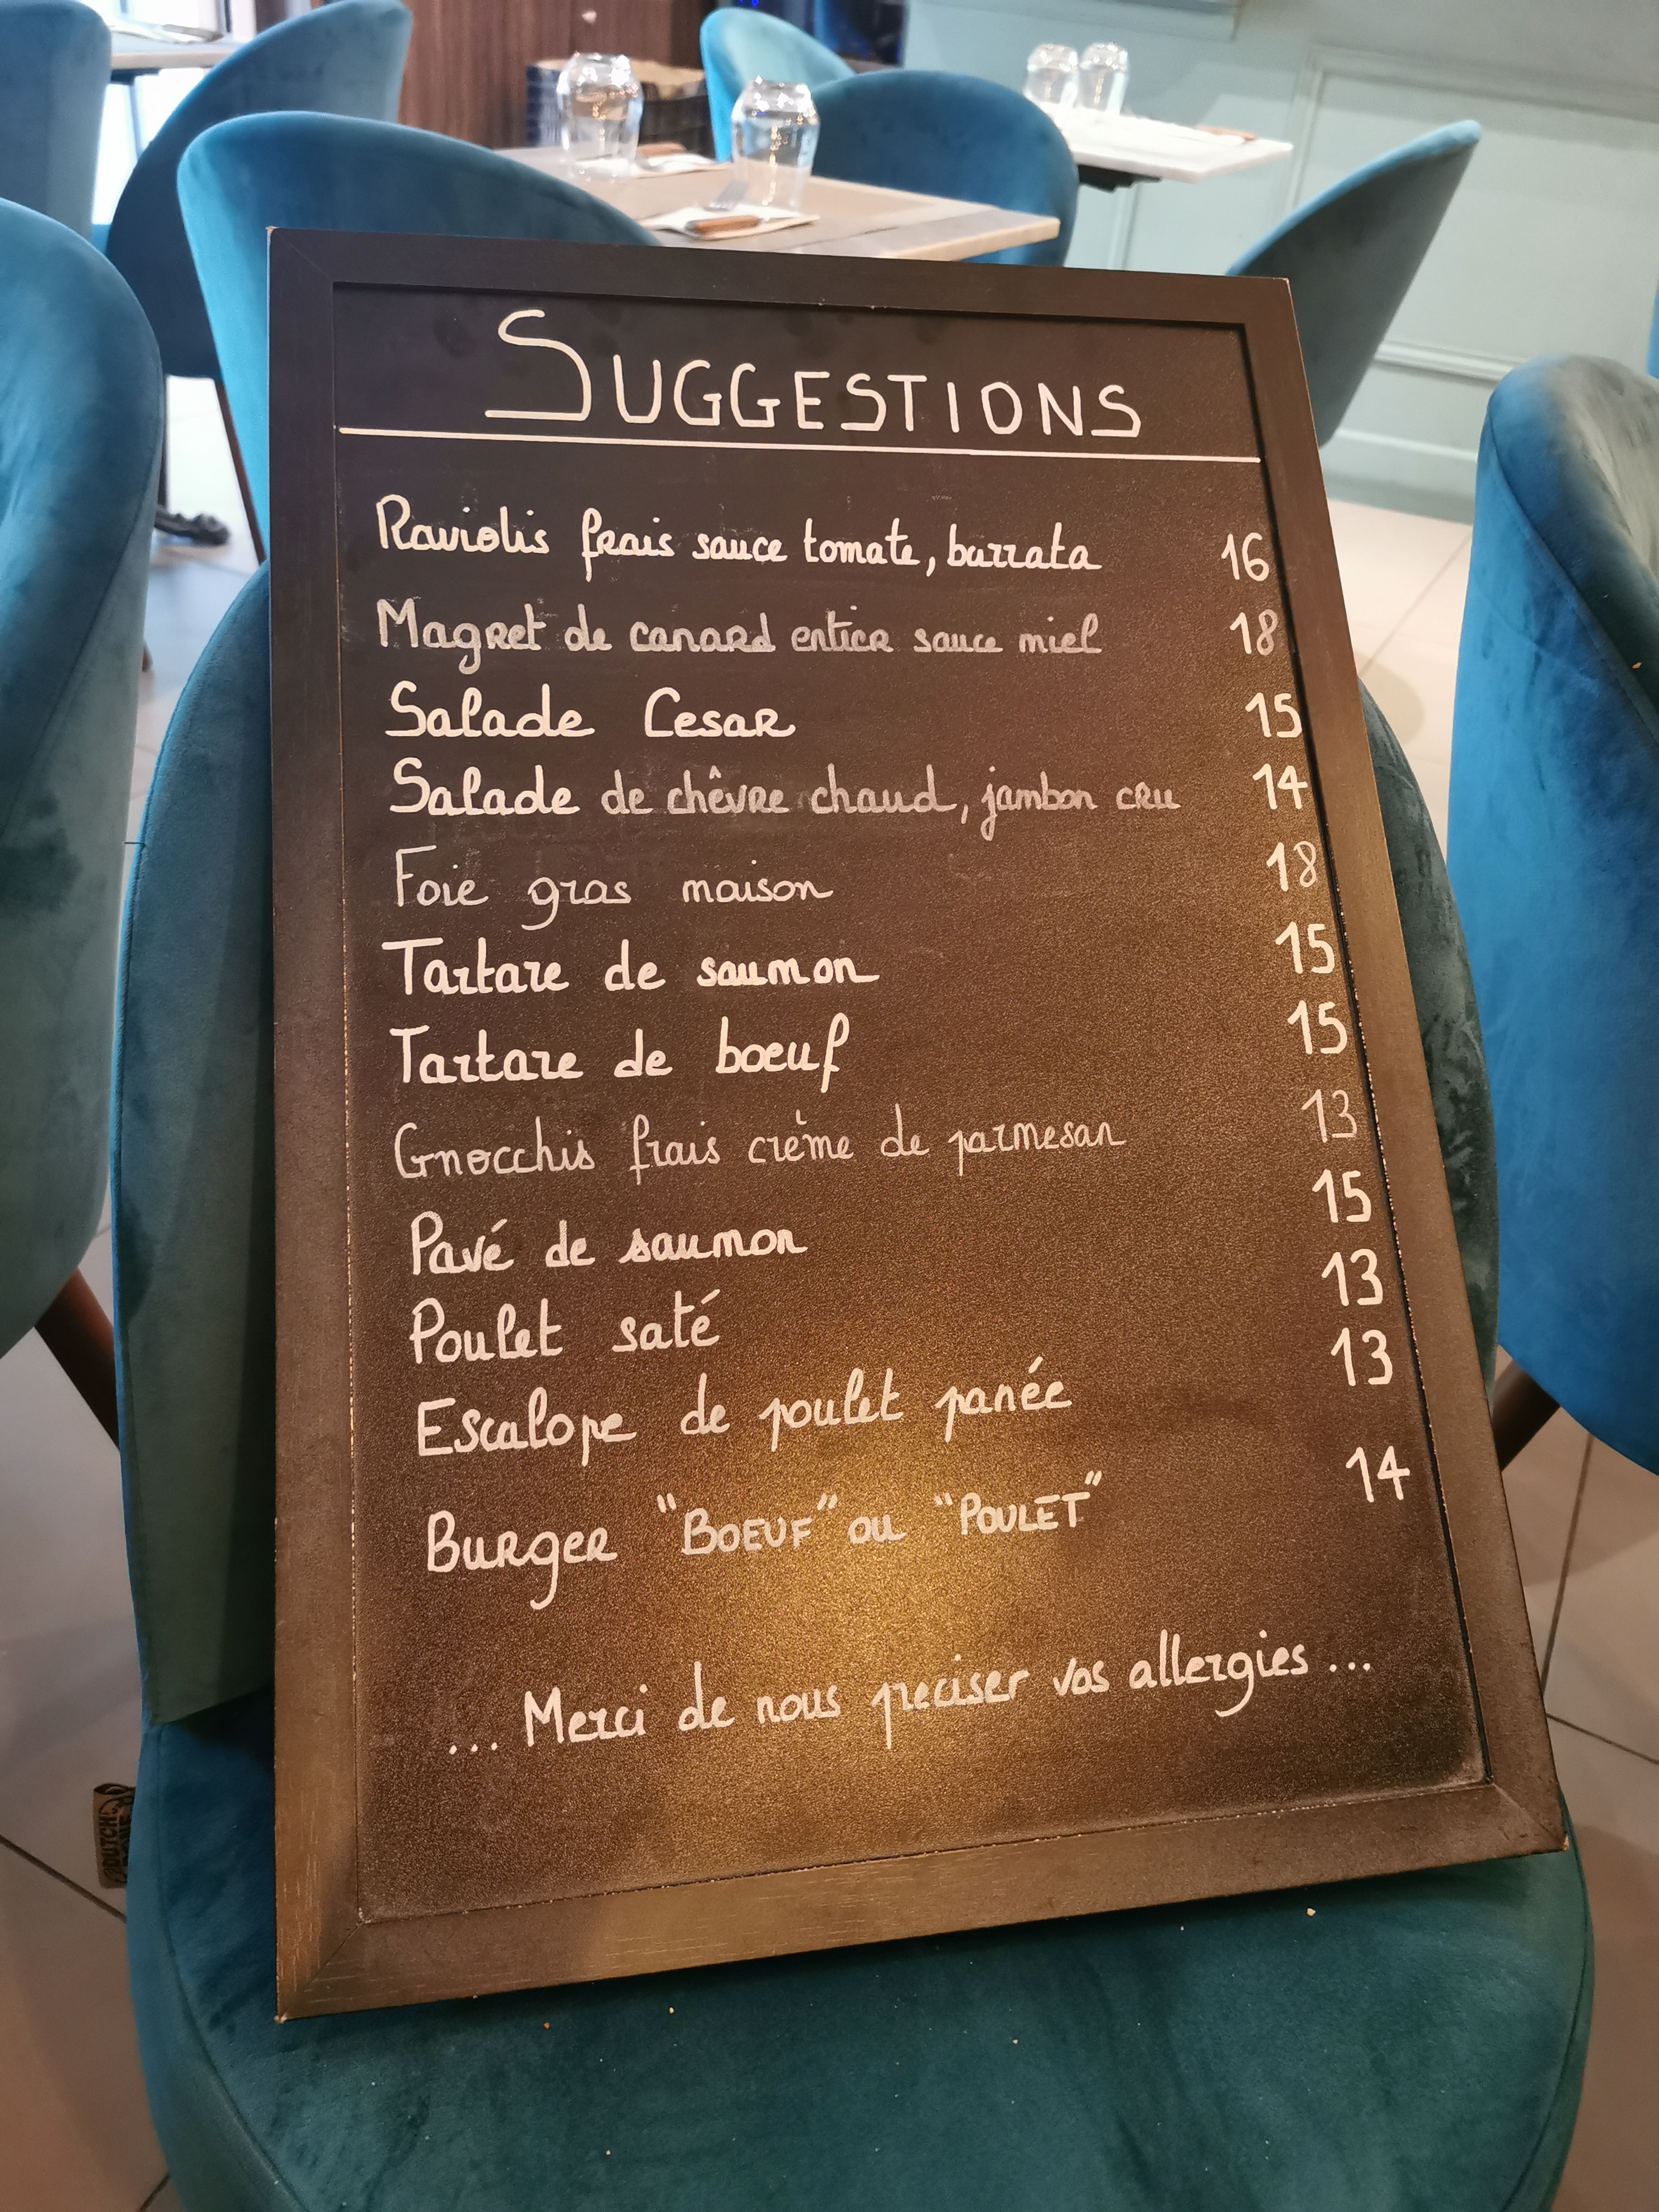 SUGGESTIONS
Raviolis frais sauce tomate, burrata 16
Magret de canard entier sauce miel 18
Salade Cesar 15
Salade de chêvre chaud, jambon cru 14
Foie gras maison 18
Tartare de saumon 15
Tartare de boeuf 15
Gnocchis frais crème de parmesan 13
Pavé de saumon 15
Poulet saté 13
Escalope de poulet panée 13
Burger "BOEUF" ou "POULET" 14
... Merci de nous preciser vos allergies ...
DUTCH